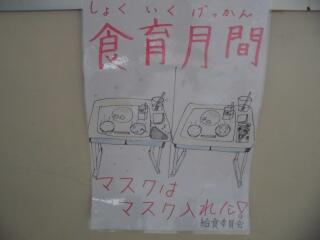 しょく いく げっかん
食育月間
マスクは
マスク入れに!
給食委員会